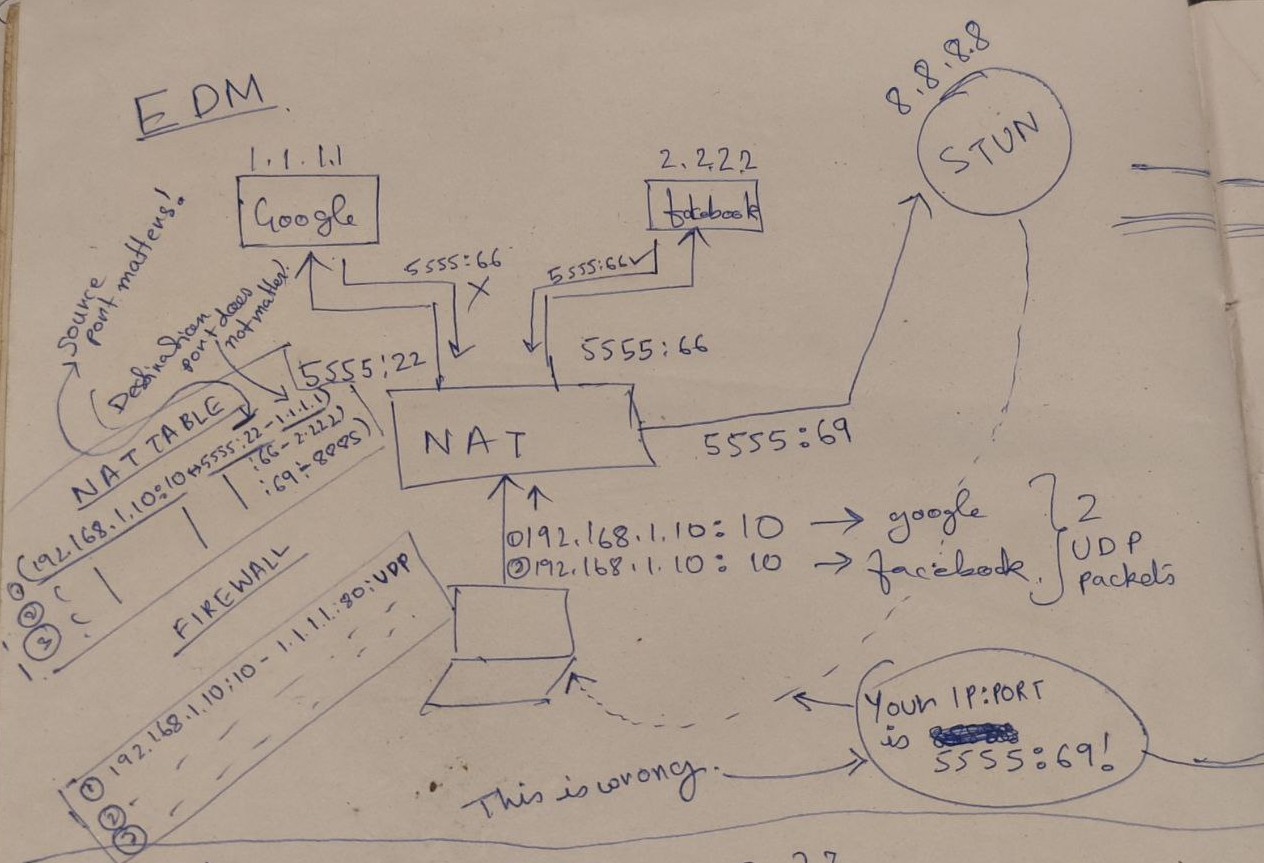 EDM.
1.1.1.1
Google
2.2.2.2
facebook
8.8.8.8
STUN
Source
port matters!
(Destination
port does
not matter!
5555:66
X
5555:66✓
5555:22
5555:66
NAT
5555:69
NAT TABLE
① (192.168.1.10:10↔5555:22-1.1.1.1)
② ( | | :66-2.2.2.2)
③ (
①192.168.1.10:10 → google
②192.168.1.10:10 → facebook.
2
UDP
packets
FIREWALL
① 192.168.1.10:10-1.1.1.1:80:UDP
②
③
Your IP:PORT
is
5555:69!
This is wrong.